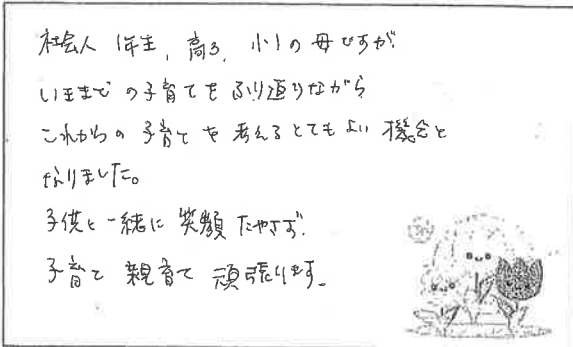 社会人 1年生, 高3, 小1の母ですが
いままでの子育てをふり返りながら
これからの子育てを考えるとてもよい機会と
なりました。
子供と一緒に笑顔たやさず
子育て 親育て 頑張ります。